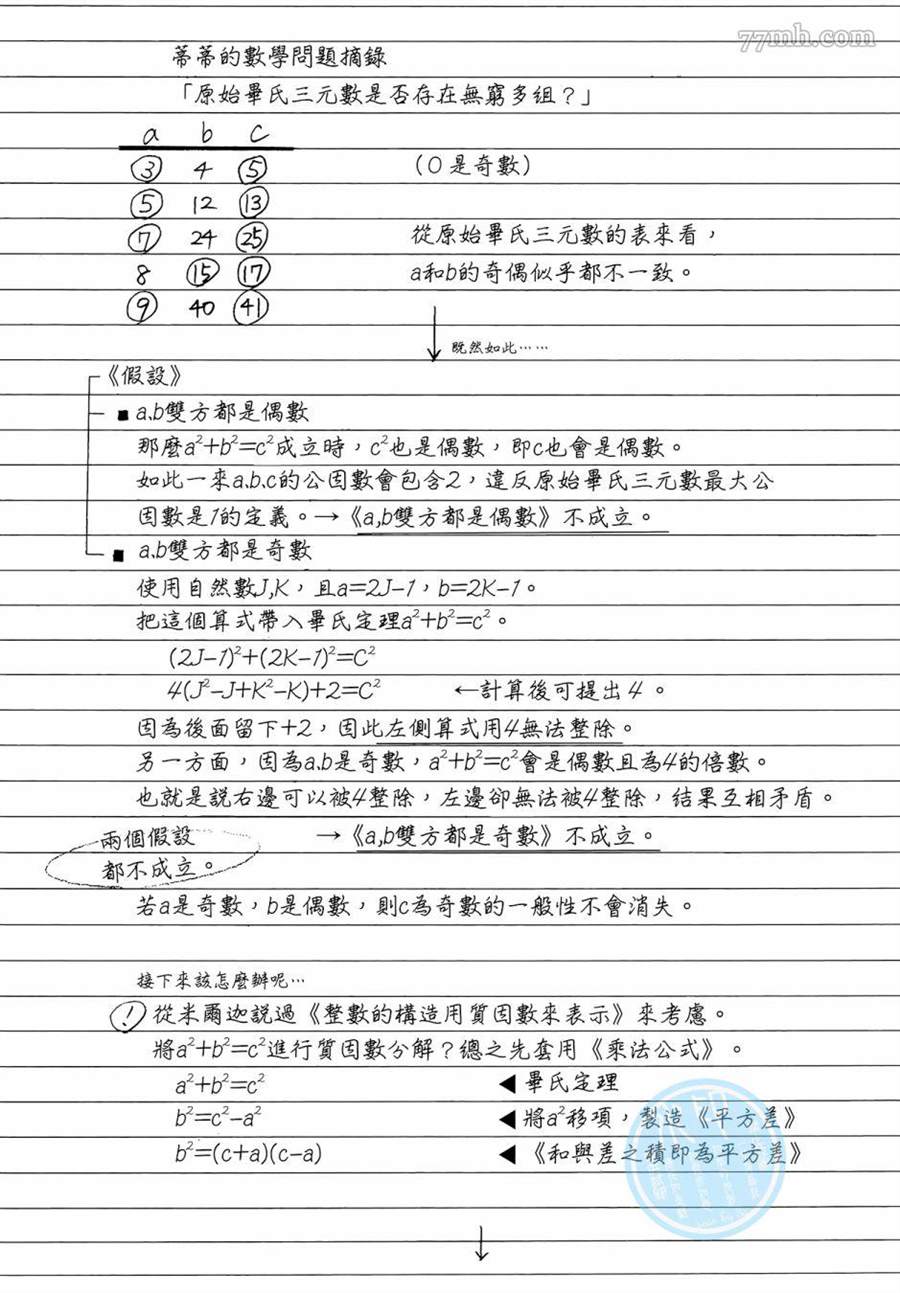 77mh.com
蒂蒂的數學問題摘錄
「原始畢氏三元數是否存在無窮多組？」
a b c
③ 4 ⑤
（○是奇數）
⑤ 12 ⑬
⑦ 24 ㉕
從原始畢氏三元數的表來看，
8 ⑮ ⑰
a和b的奇偶似乎都不一致。
⑨ 40 ㊶
↓ 既然如此……
《假設》
■ a.b雙方都是偶數
那麼a²+b²=c²成立時，c²也是偶數，即c也會是偶數。
如此一來a.b.c的公因數會包含2，違反原始畢氏三元數最大公
因數是1的定義。→《a,b雙方都是偶數》不成立。
■ a.b雙方都是奇數
使用自然數J,K，且a=2J-1，b=2K-1。
把這個算式帶入畢氏定理a²+b²=c²。
(2J-1)²+(2K-1)²=C²
4(J²-J+K²-K)+2=C² ←計算後可提出4。
因為後面留下+2，因此左側算式用4無法整除。
另一方面，因為a.b是奇數，a²+b²=c²會是偶數且為4的倍數。
也就是說右邊可以被4整除，左邊卻無法被4整除，結果互相矛盾。
→《a,b雙方都是奇數》不成立。
兩個假設
都不成立。
若a是奇數，b是偶數，則c為奇數的一般性不會消失。
接下來該怎麼辦呢…
！從米爾迦說過《整數的構造用質因數來表示》來考慮。
將a²+b²=c²進行質因數分解？總之先套用《乘法公式》。
a²+b²=c² ◀ 畢氏定理
b²=c²-a² ◀ 將a²移項，製造《平方差》
b²=(c+a)(c-a) ◀ 《和與差之積即為平方差》
↓